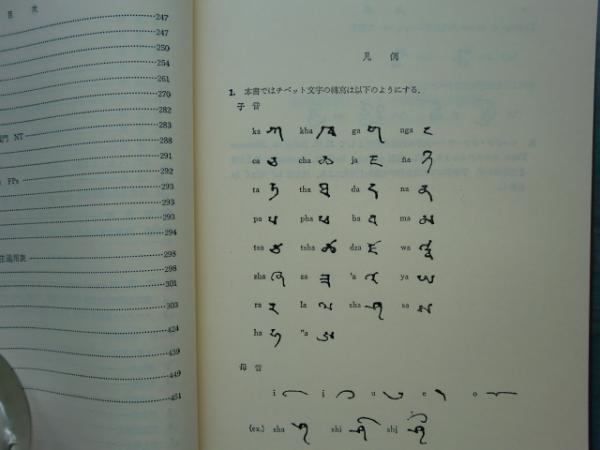 目 次
247
247
250
254
261
270
282
門 NT 283
288
291
FPs 292
293
293
294
295
298
301
303
424
439
449
451
凡 例
1. 本書ではチベット文字の轉寫は以下のようにする.
子 音
ka ཀ kha ཁ ga ག nga ང
ca ཅ cha ཆ ja ཇ ña ཉ
ta ཏ tha ཐ da ད na ན
pa པ pha ཕ ba བ ma མ
tsa ཙ tsha ཚ dza ཛ wa ཝ
zha ཞ za ཟ 'a འ ya ཡ
ra ར la ལ sha ཤ sa ས
ha ཧ "a ཨ
母 音
i ི i ྀ u ུ e ེ o ོ
(ex.) sha ཤ shi ཤི